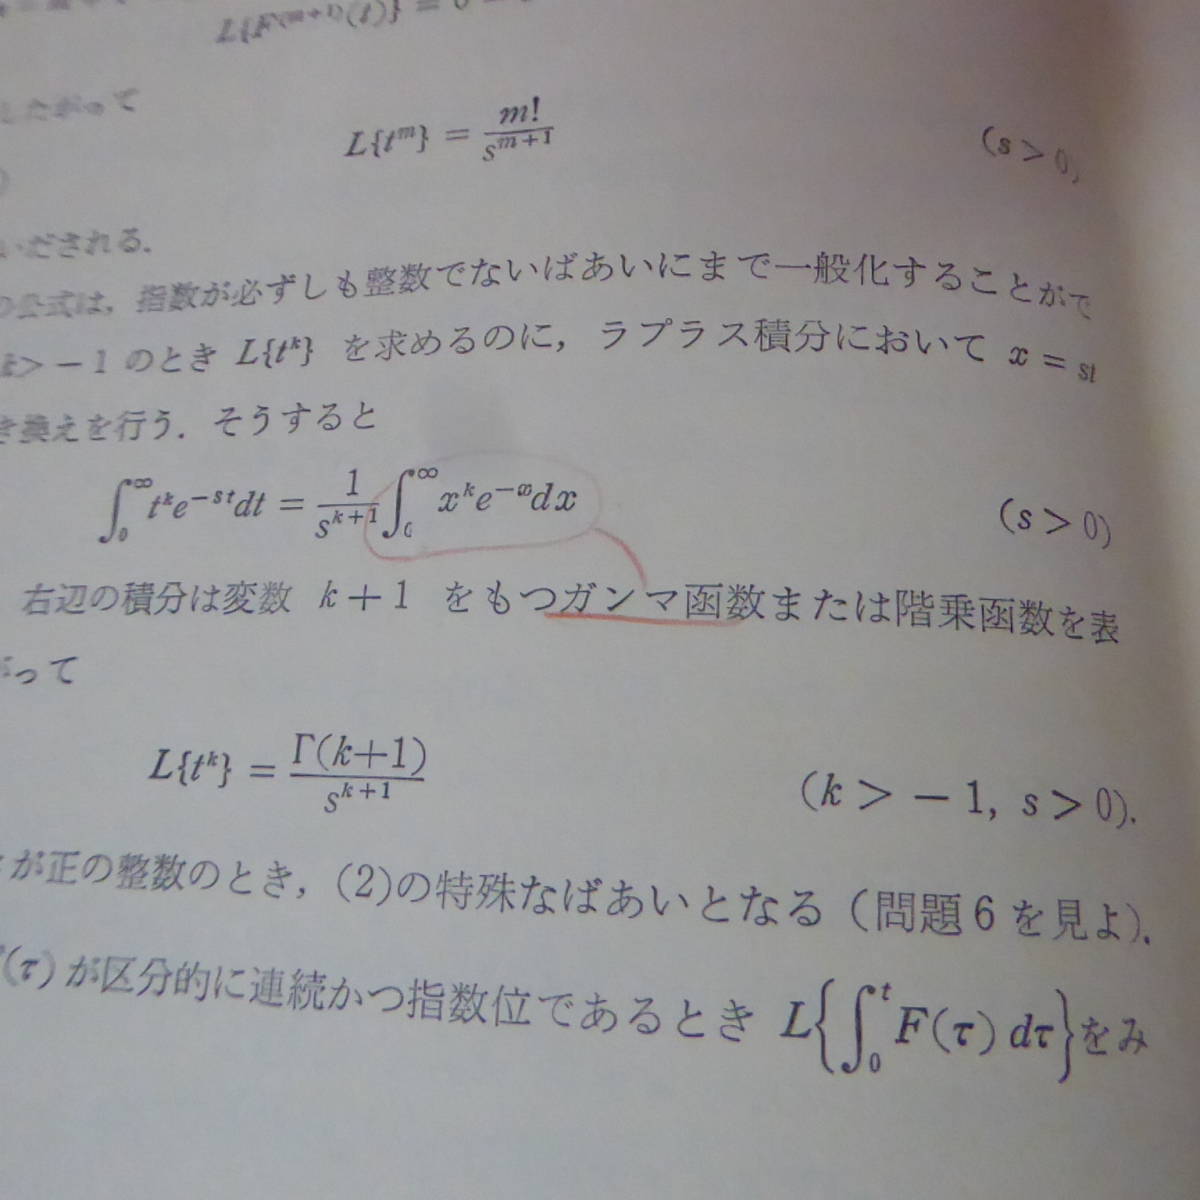 L{F^(m+1)(t)} = 0
したがって
L{t^m} = m!/s^{m+1} (s > 0)
いだされる.
の公式は, 指数が必ずしも整数でないばあいにまで一般化することがで
k > −1 のとき L{t^k} を求めるのに, ラプラス積分において x = st
き換えを行う. そうすると
∫_0^∞ t^k e^{−st} dt = 1/s^{k+1} ∫_0^∞ x^k e^{−x} dx (s > 0)
右辺の積分は変数 k+1 をもつガンマ函数または階乗函数を表
がって
L{t^k} = Γ(k+1)/s^{k+1} (k > −1, s > 0).
が正の整数のとき, (2)の特殊なばあいとなる (問題6を見よ).
F(τ) が区分的に連続かつ指数位であるとき L{∫_0^t F(τ) dτ} をみ